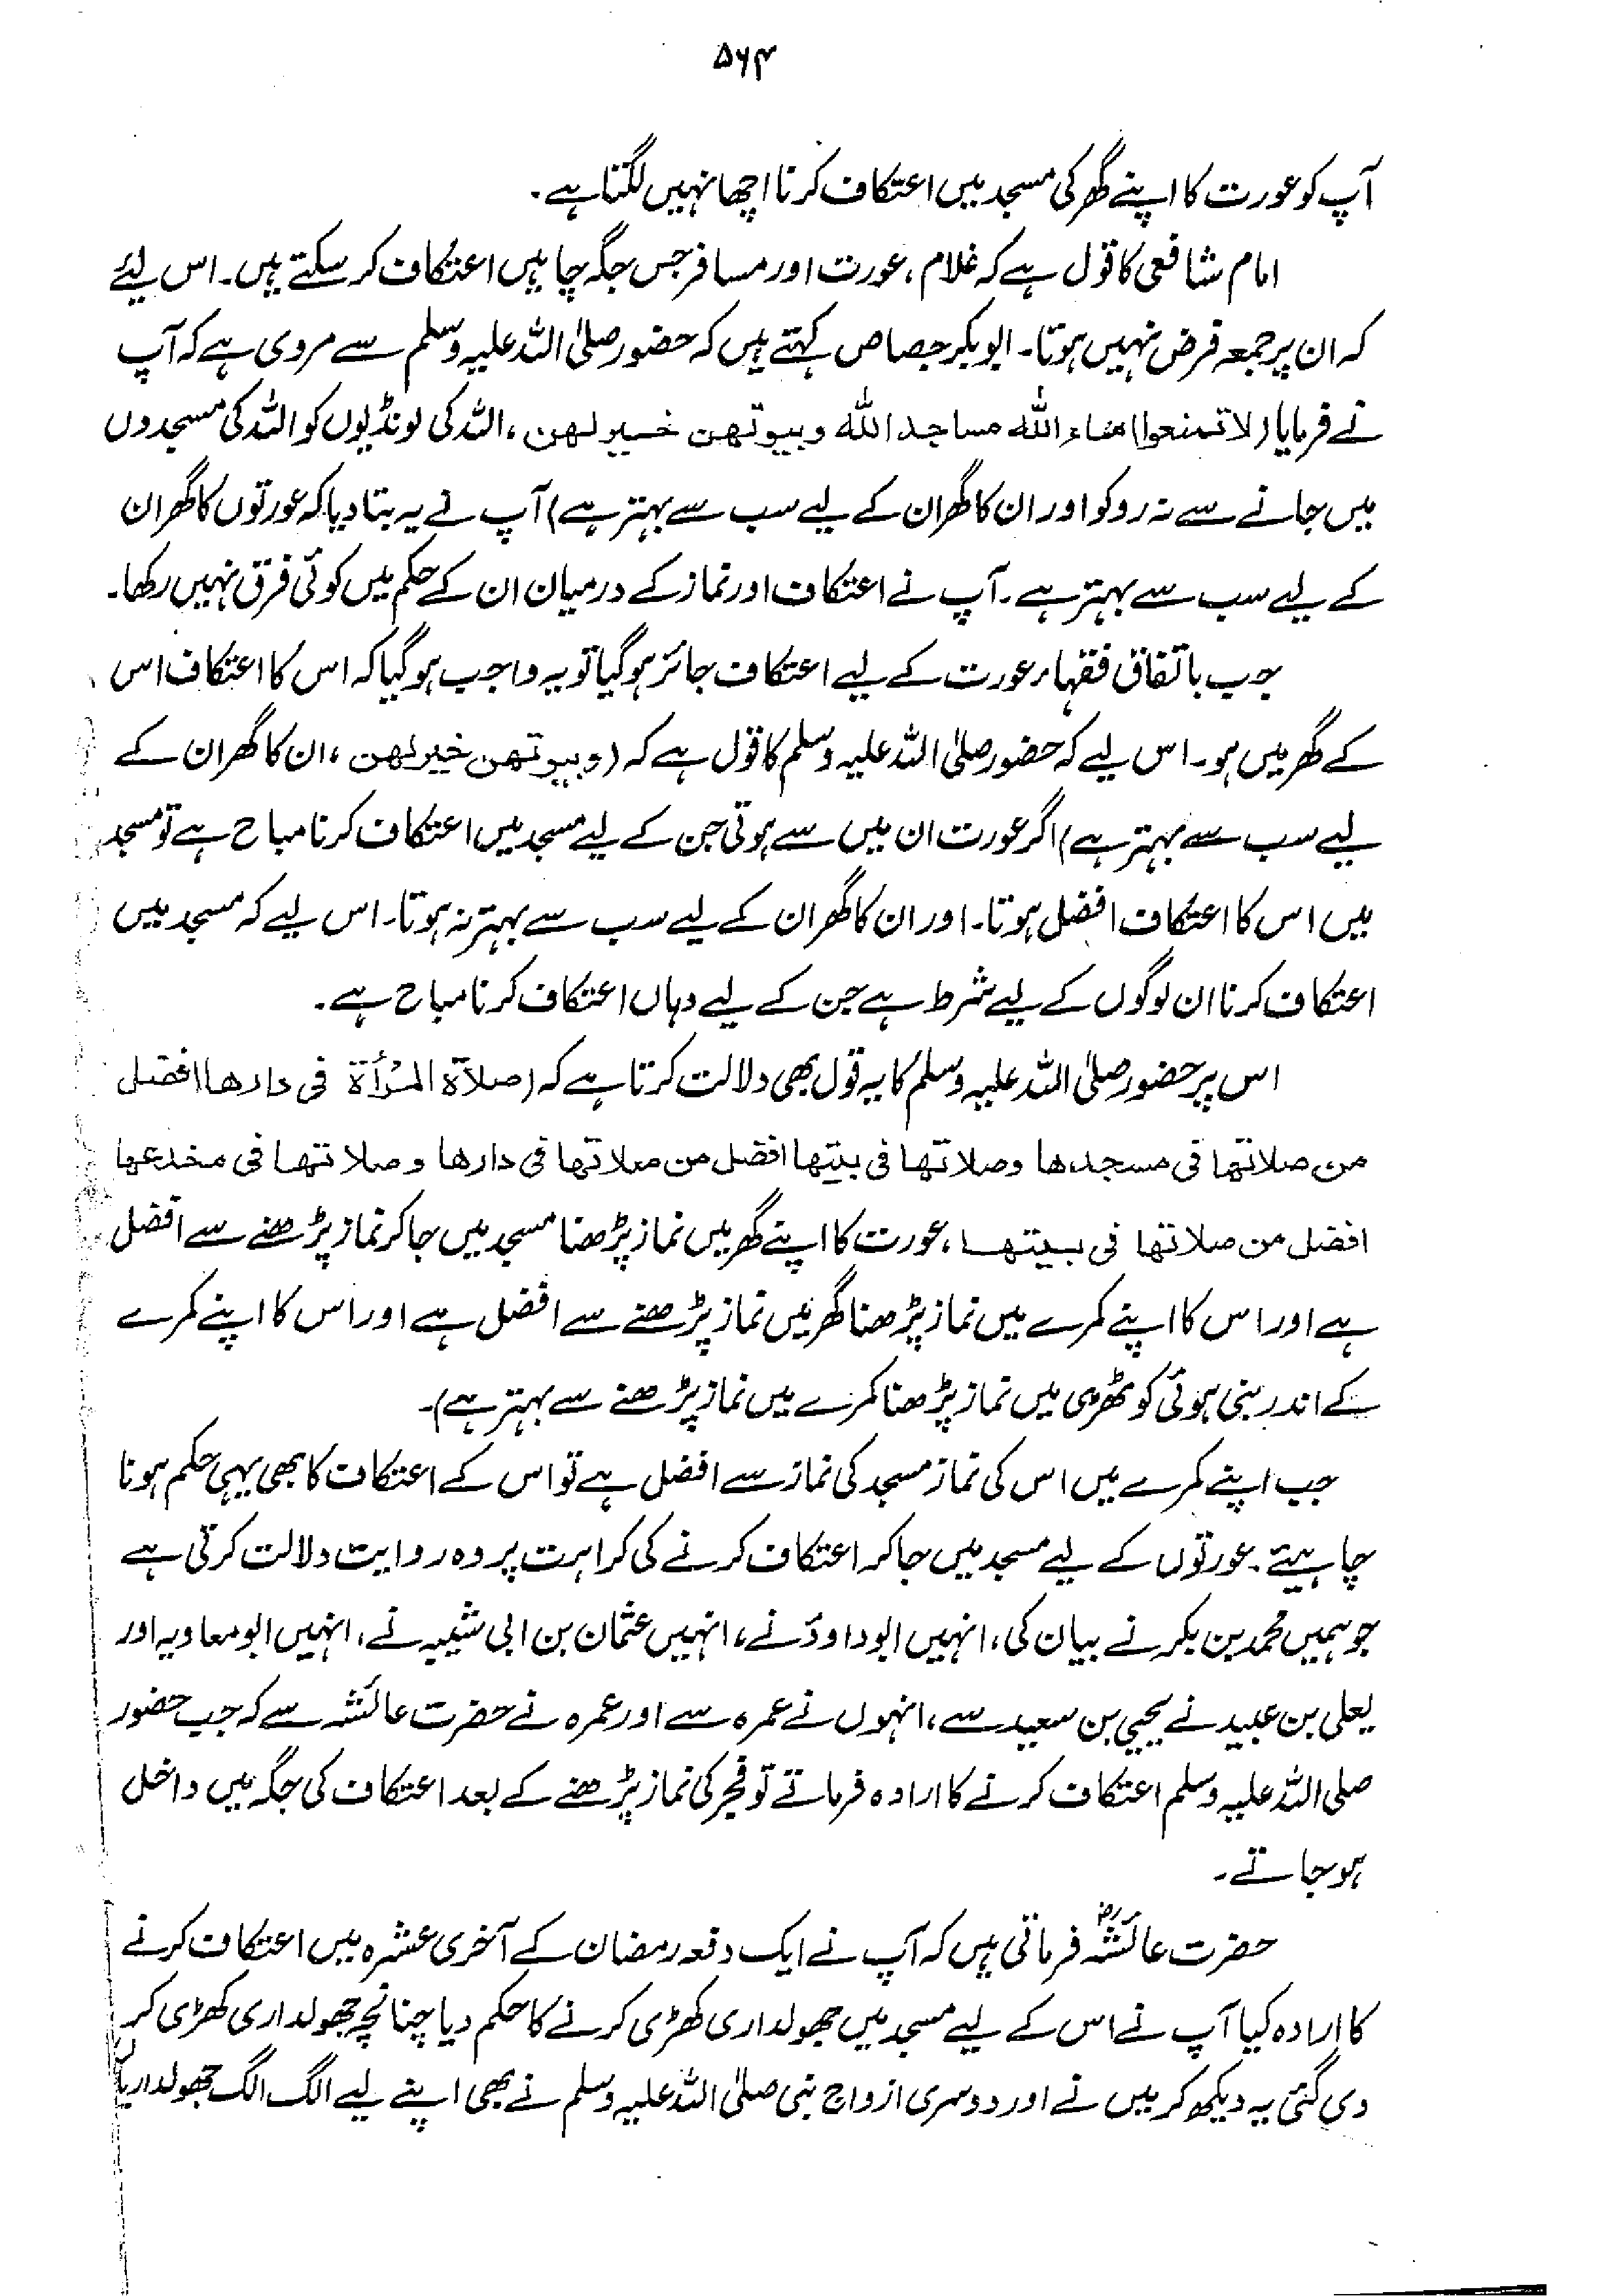 ۵۶۴
آپ کو عورت کا اپنے گھر کی مسجد میں اعتکاف کرنا اچھا نہیں لگتا ہے۔
امام شافعی کا قول ہے کہ غلام، عورت اور مسافر جس جگہ چاہیں اعتکاف کر سکتے ہیں۔ اس لئے
کہ ان پر جمعہ فرض نہیں ہوتا۔ ابوبکر جصاص کہتے ہیں کہ حضور صلی اللہ علیہ وسلم سے مروی ہے کہ آپ
نے فرمایا (لا تمنعوا اماء اللہ مساجد اللہ وبیوتھن خیر لھن، اللہ کی لونڈیوں کو اللہ کی مسجدوں
میں جانے سے نہ روکو اور ان کا گھر ان کے لیے سب سے بہتر ہے) آپ نے یہ بتا دیا کہ عورتوں کا گھر ان
کے لیے سب سے بہتر ہے۔ آپ نے اعتکاف اور نماز کے درمیان ان کے حکم میں کوئی فرق نہیں رکھا۔
جب باتفاق فقہاء عورت کے لیے اعتکاف جائز ہو گیا تو یہ واجب ہو گیا کہ اس کا اعتکاف اس
کے گھر میں ہو۔ اس لیے کہ حضور صلی اللہ علیہ وسلم کا قول ہے کہ (وبیوتھن خیر لھن، ان کا گھر ان کے
لیے سب سے بہتر ہے) اگر عورت ان میں سے ہوتی جن کے لیے مسجد میں اعتکاف کرنا مباح ہے تو مسجد
میں اس کا اعتکاف افضل ہوتا۔ اور ان کا گھر ان کے لیے سب سے بہتر نہ ہوتا۔ اس لیے کہ مسجد میں
اعتکاف کرنا ان لوگوں کے لیے شرط ہے جن کے لیے وہاں اعتکاف کرنا مباح ہے۔
اس پر حضور صلی اللہ علیہ وسلم کا یہ قول بھی دلالت کرتا ہے کہ (صلاۃ المرأۃ فی دارھا افضل
من صلاتھا فی مسجدھا وصلاتھا فی بیتھا افضل من صلاتھا فی دارھا وصلاتھا فی مخدعھا
افضل من صلاتھا فی بیتھا، عورت کا اپنے گھر میں نماز پڑھنا مسجد میں جا کر نماز پڑھنے سے افضل
ہے اور اس کا اپنے کمرے میں نماز پڑھنا گھر میں نماز پڑھنے سے افضل ہے اور اس کا اپنے کمرے
کے اندر بنی ہوئی کوٹھڑی میں نماز پڑھنا کمرے میں نماز پڑھنے سے بہتر ہے)۔
جب اپنے کمرے میں اس کی نماز مسجد کی نماز سے افضل ہے تو اس کے اعتکاف کا بھی یہی حکم ہونا
چاہیئے۔ عورتوں کے لیے مسجد میں جا کر اعتکاف کرنے کی کراہت پر وہ روایت دلالت کرتی ہے
جو ہمیں محمد بن بکر نے بیان کی، انہیں ابوداؤد نے، انہیں عثمان بن ابی شیبہ نے، انہیں ابو معاویہ اور
یعلی بن عبید نے یحیی بن سعید سے، انہوں نے عمرہ سے اور عمرہ نے حضرت عائشہ سے کہ جب حضور
صلی اللہ علیہ وسلم اعتکاف کرنے کا ارادہ فرماتے تو فجر کی نماز پڑھنے کے بعد اعتکاف کی جگہ میں داخل
ہو جاتے۔
حضرت عائشہؓ فرماتی ہیں کہ آپ نے ایک دفعہ رمضان کے آخری عشرہ میں اعتکاف کرنے
کا ارادہ کیا آپ نے اس کے لیے مسجد میں چھولداری کھڑی کرنے کا حکم دیا چنانچہ چھولداری کھڑی کر
دی گئی یہ دیکھ کر میں نے اور دوسری ازواج نبی صلی اللہ علیہ وسلم نے بھی اپنے لیے الگ الگ چھولداریاں